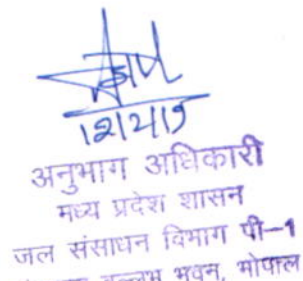 अनुभाग अधिकारी
मध्य प्रदेश शासन
जल संसाधन विभाग पी-1
वल्लभ भवन, भोपाल